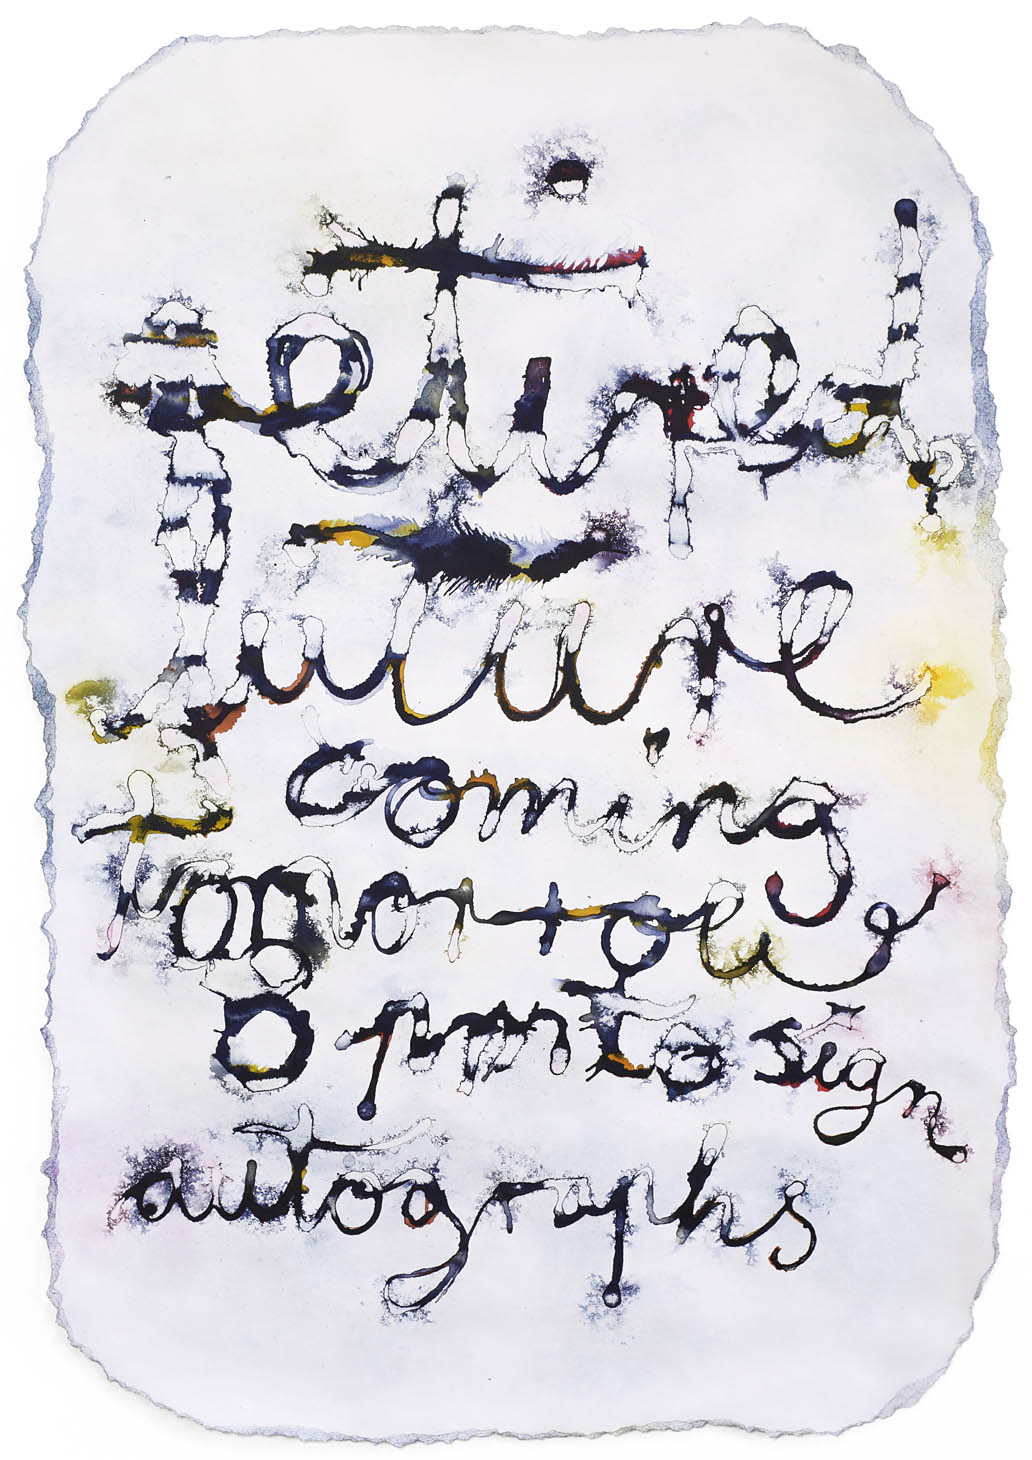 retired
future
coming
tomorrow
8 pm to sign
autographs